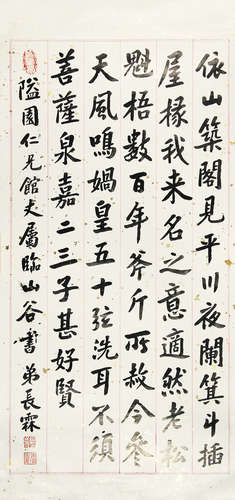 依山築閣見平川夜闌箕斗插
屋椽我来名之意適然老松
魁梧數百年斧斤所赦今參
天風鳴媧皇五十弦洗耳不須
菩薩泉嘉二三子甚好賢
隘園仁兄館丈屬臨山谷書 弟長霖